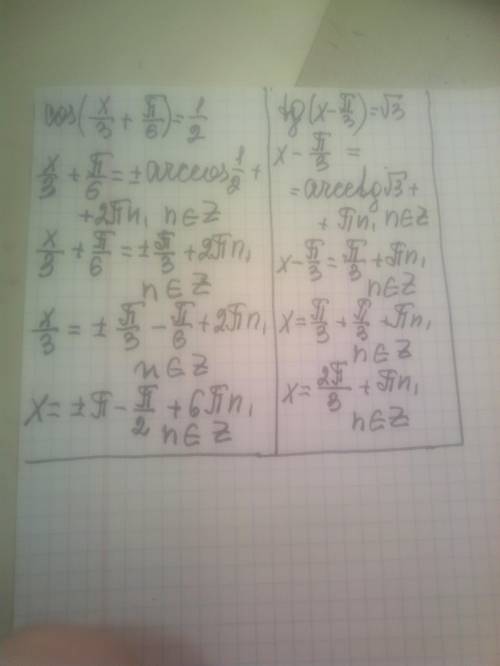 cos(x/3 + π/6) = 1/2
x/3 + π/6 = ± arccos 1/2 +
+ 2πn, n ∈ Z
x/3 + π/6 = ± π/3 + 2πn,
n ∈ Z
x/3 = ± π/3 − π/6 + 2πn,
n ∈ Z
x = ± π − π/2 + 6πn,
n ∈ Z
tg(x − π/3) = √3
x − π/3 =
= arcctg √3 +
+ πn, n ∈ Z
x − π/3 = π/3 + πn,
n ∈ Z
x = π/3 + π/3 + πn,
n ∈ Z
x = 2π/3 + πn,
n ∈ Z